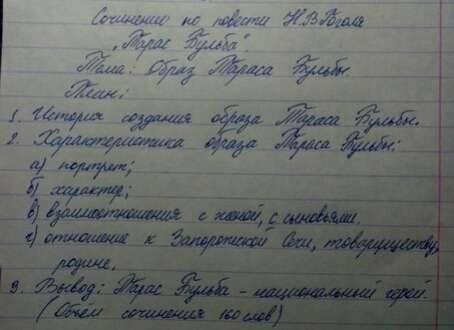 Сочинение по повести Н.В.Гоголя
„Тарас Бульба".
Тема: Образ Тараса Бульбы
План:
1. История создания образа Тараса Бульбы.
2. Характеристика образа Тараса Бульбы:
а) портрет;
б) характер;
в) взаимоотношения с женой, с сыновьями.
г) отношение к Запорожской Сечи, товариществу,
родине.
3. Вывод: Тарас Бульба - национальный герой.
(Объём сочинения 100 слов)